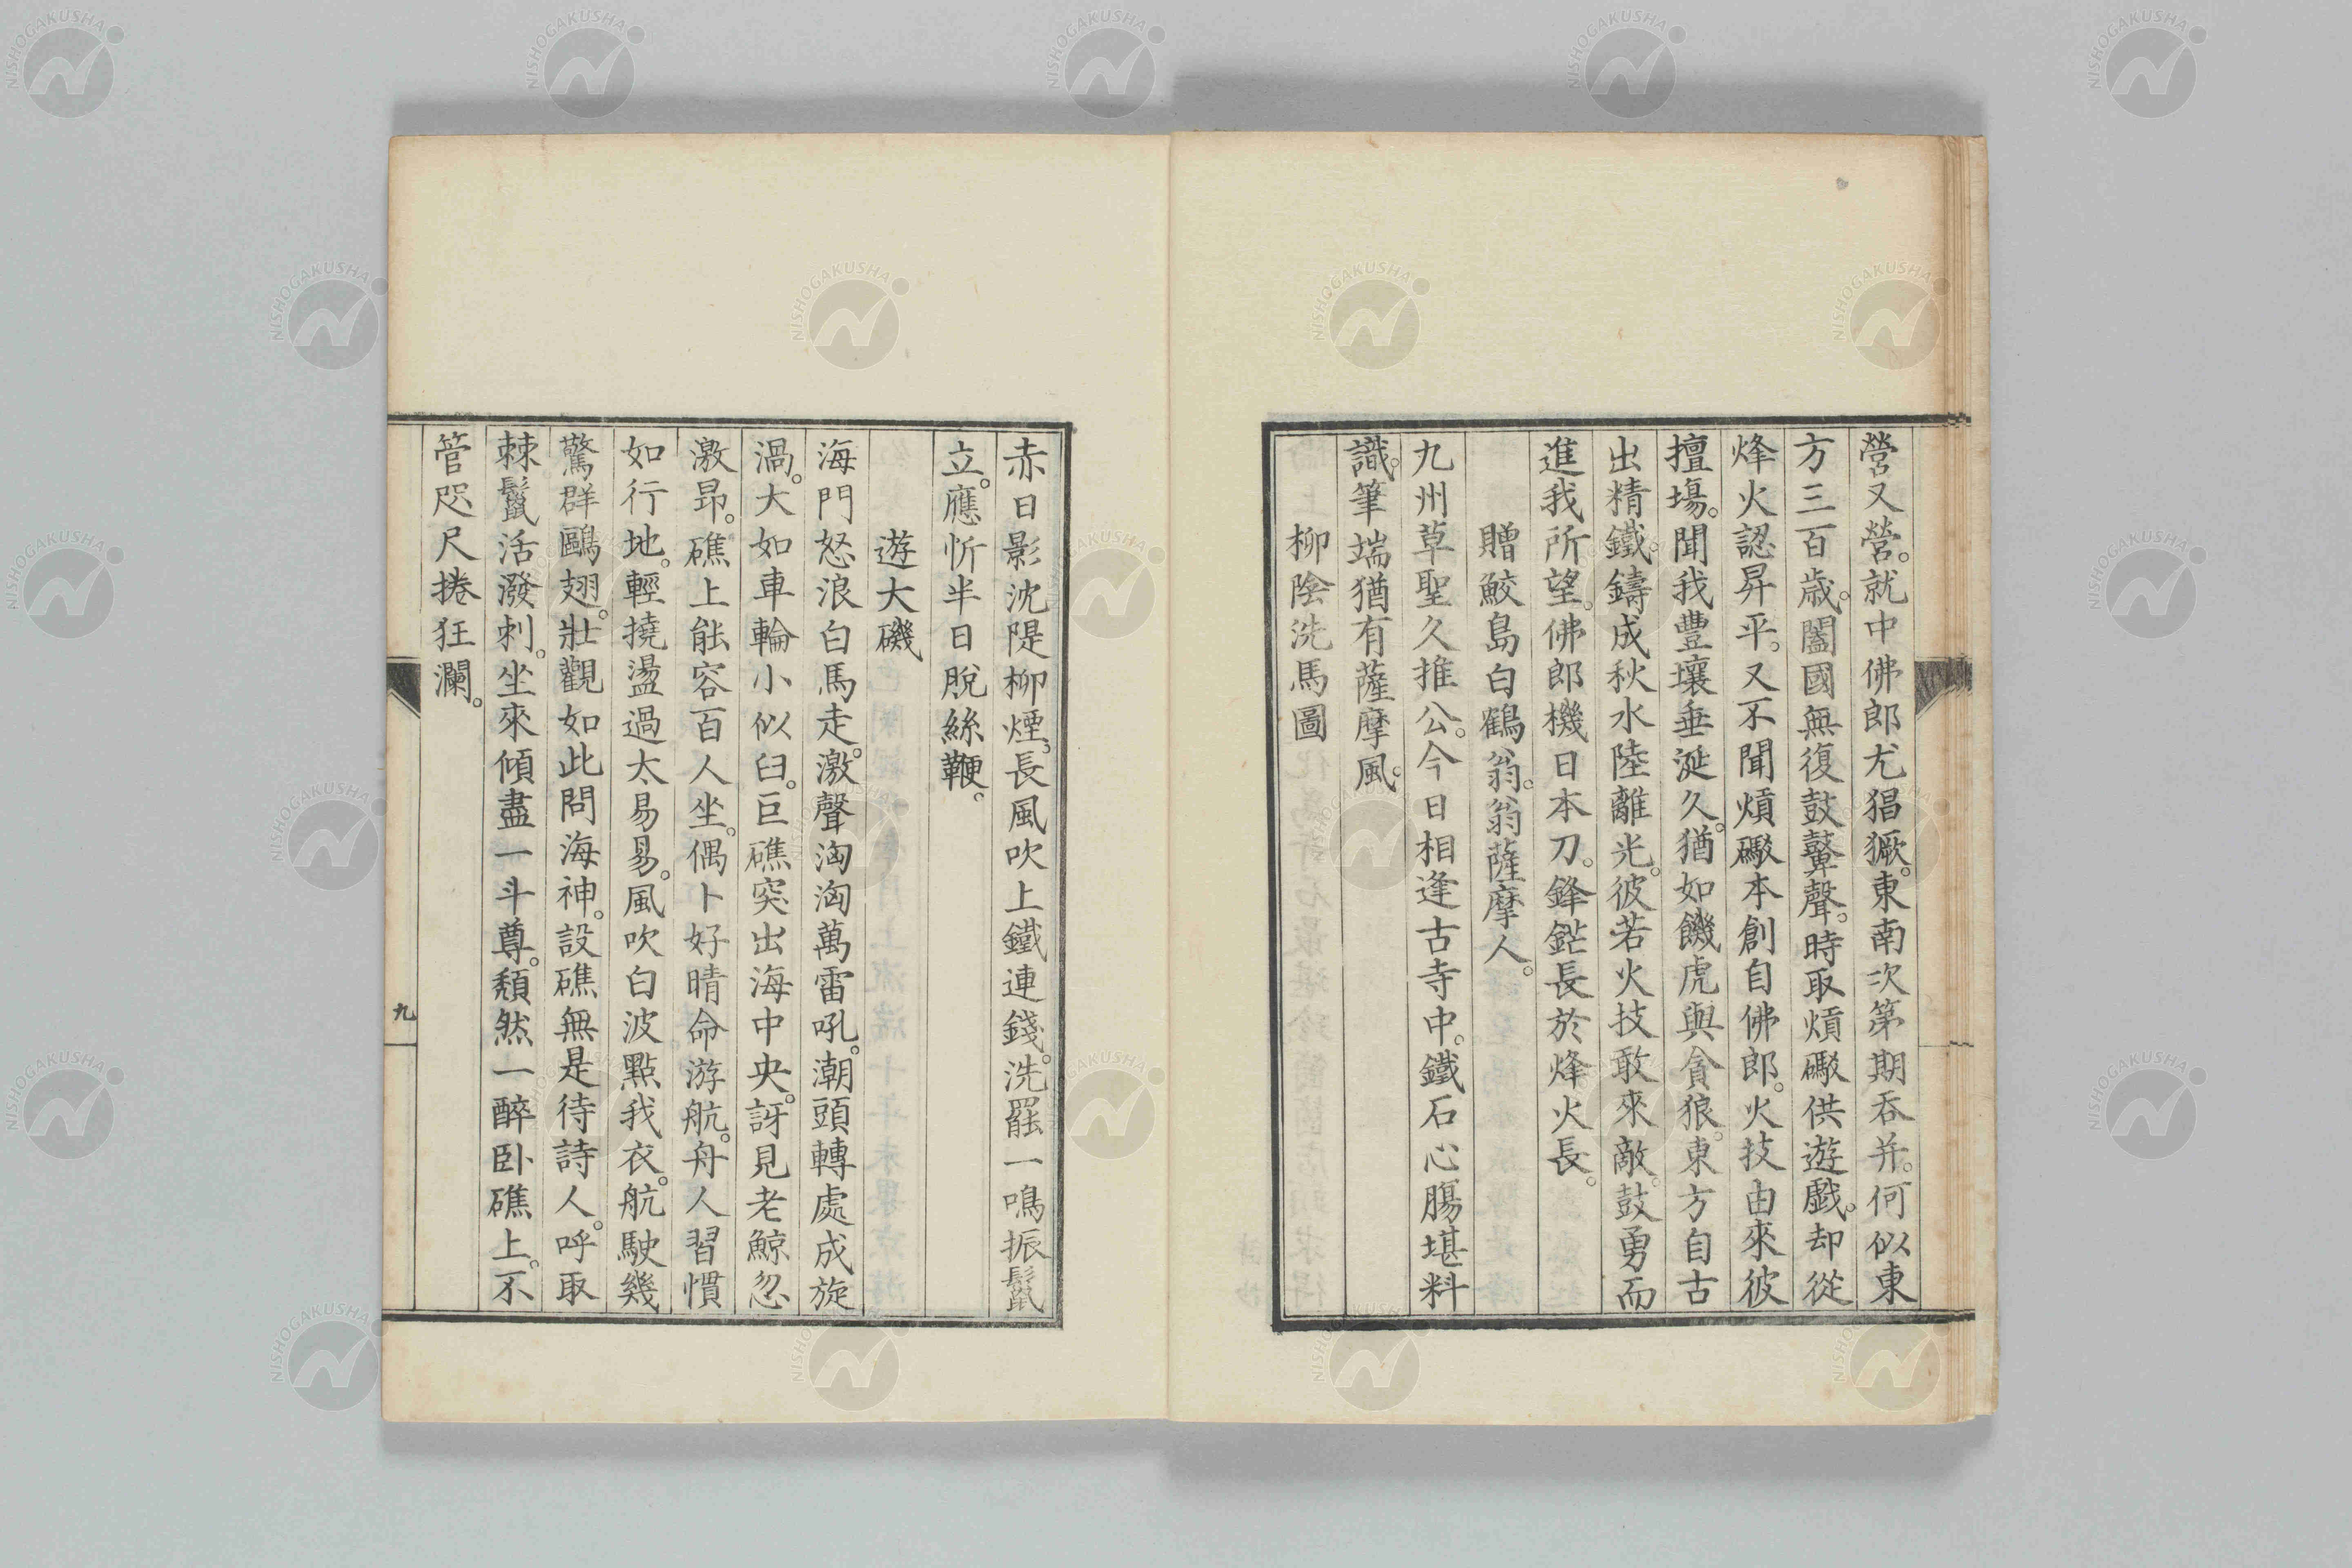 營又營。就中佛郎尤猖獗。東南次第期呑并。何似東
方三百歳。闔國無復鼓鼙聲。時取熕礮供遊戲。却從
烽火認昇平。又不聞熕礮本創自佛郎。火技由來彼
擅場。聞我豐壤垂涎久。猶如饑虎與貪狼。東方自古
出精鐵。鑄成秋水陸離光。彼若火技敢來敵。鼓勇而
進我所望。佛郎機日本刀。鋒鋩長於烽火長。
贈鮫島白鶴翁。翁薩摩人。
九州草聖久推公。今日相逢古寺中。鐵石心腸堪料
識。筆端猶有薩摩風。
柳陰洗馬圖
赤日影沈隄柳煙。長風吹上鐵連錢。洗罷一鳴振鬣
立。應忻半日脫絲鞭。
遊大磯
海門怒浪白馬走。激聲洶洶萬雷吼。潮頭轉處成旋
渦。大如車輪小似臼。巨礁突出海中央。訝見老鯨忽
激昂。礁上能容百人坐。偶卜好晴命游航。舟人習慣
如行地。輕撓盪過太易易。風吹白波點我衣。航駛幾
驚群鷗翅。壯觀如此問海神。設礁無是待詩人。呼取
棘鬣活潑刺。坐來傾盡一斗尊。頹然一醉卧礁上。不
管咫尺捲狂瀾。
九
NISHOGAKUSHA